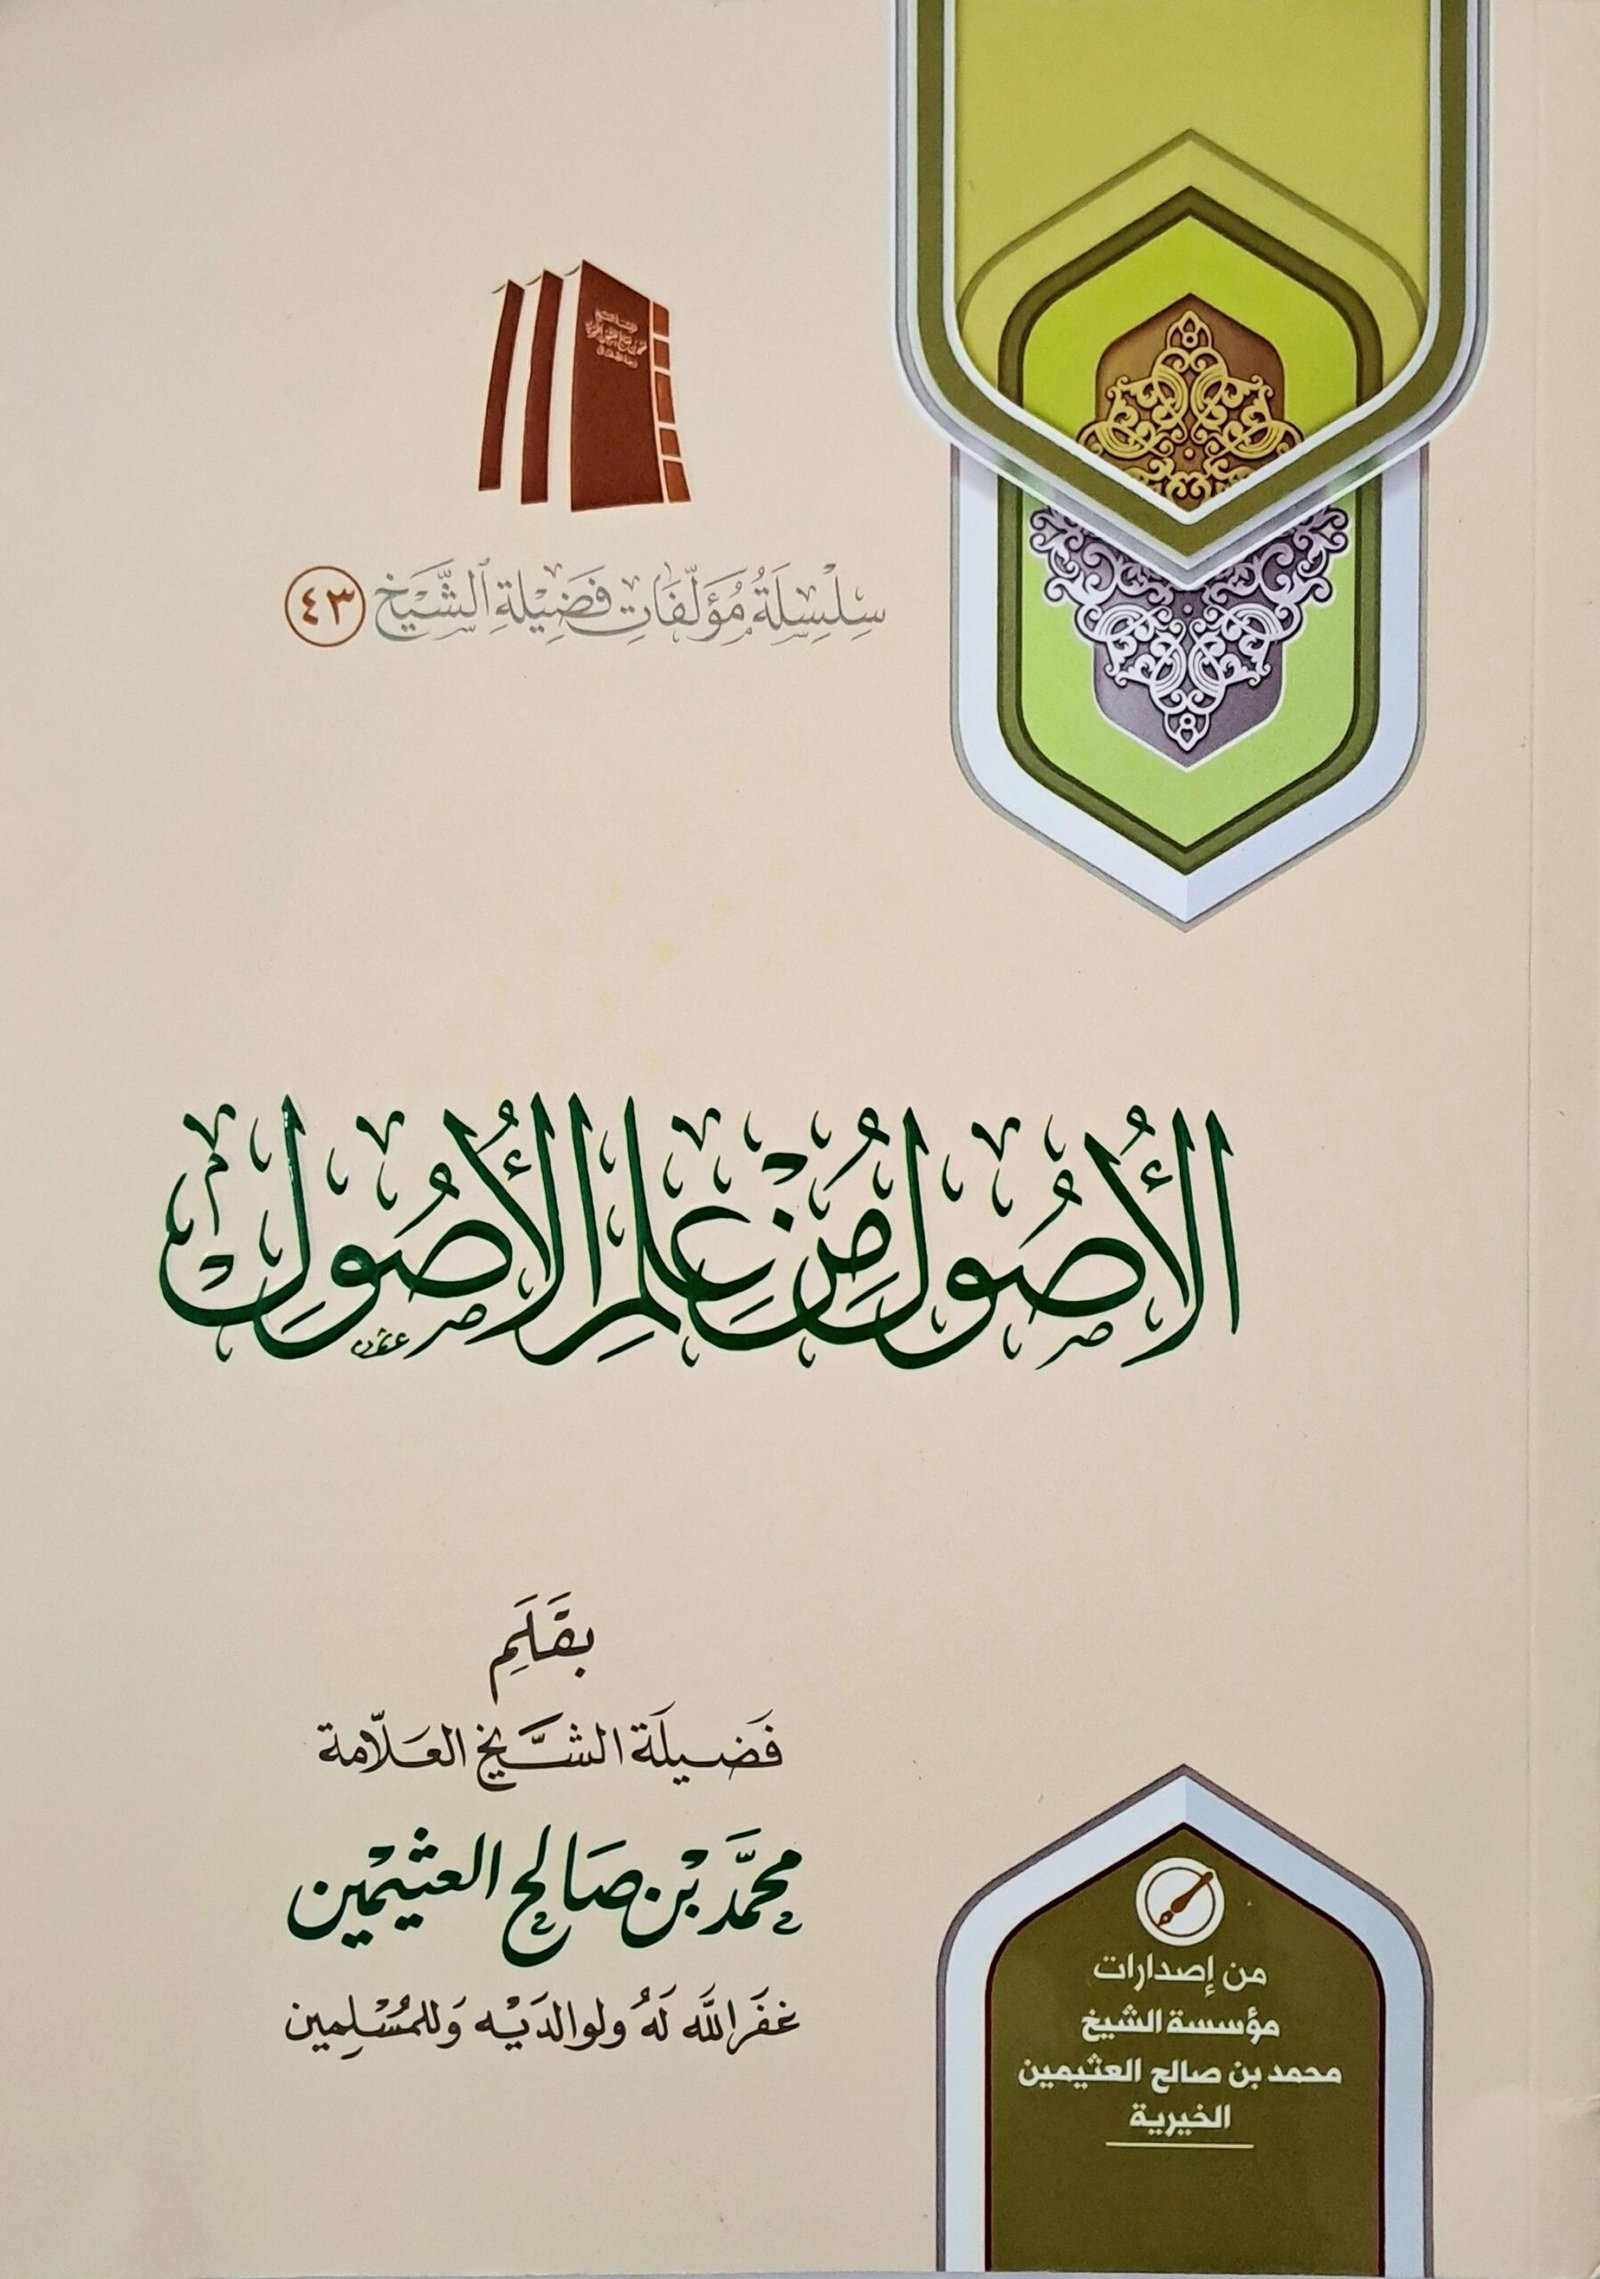 سِلْسِلَةُ مُؤَلَّفَاتِ فَضِيلَةِ الشَّيْخِ ٤٣
الأُصُولُ مِنْ عِلْمِ الأُصُولِ
بِقَلَمِ
فَضِيلَة الشَّيْخ العَلَّامَة
مُحَمَّد بْن صَالِح العثيمين
غَفَرَ اللَّه لَهُ ولوالدَيْه وَللمُسْلِمين
من إصدارات
مؤسسة الشيخ
محمد بن صالح العثيمين
الخيرية